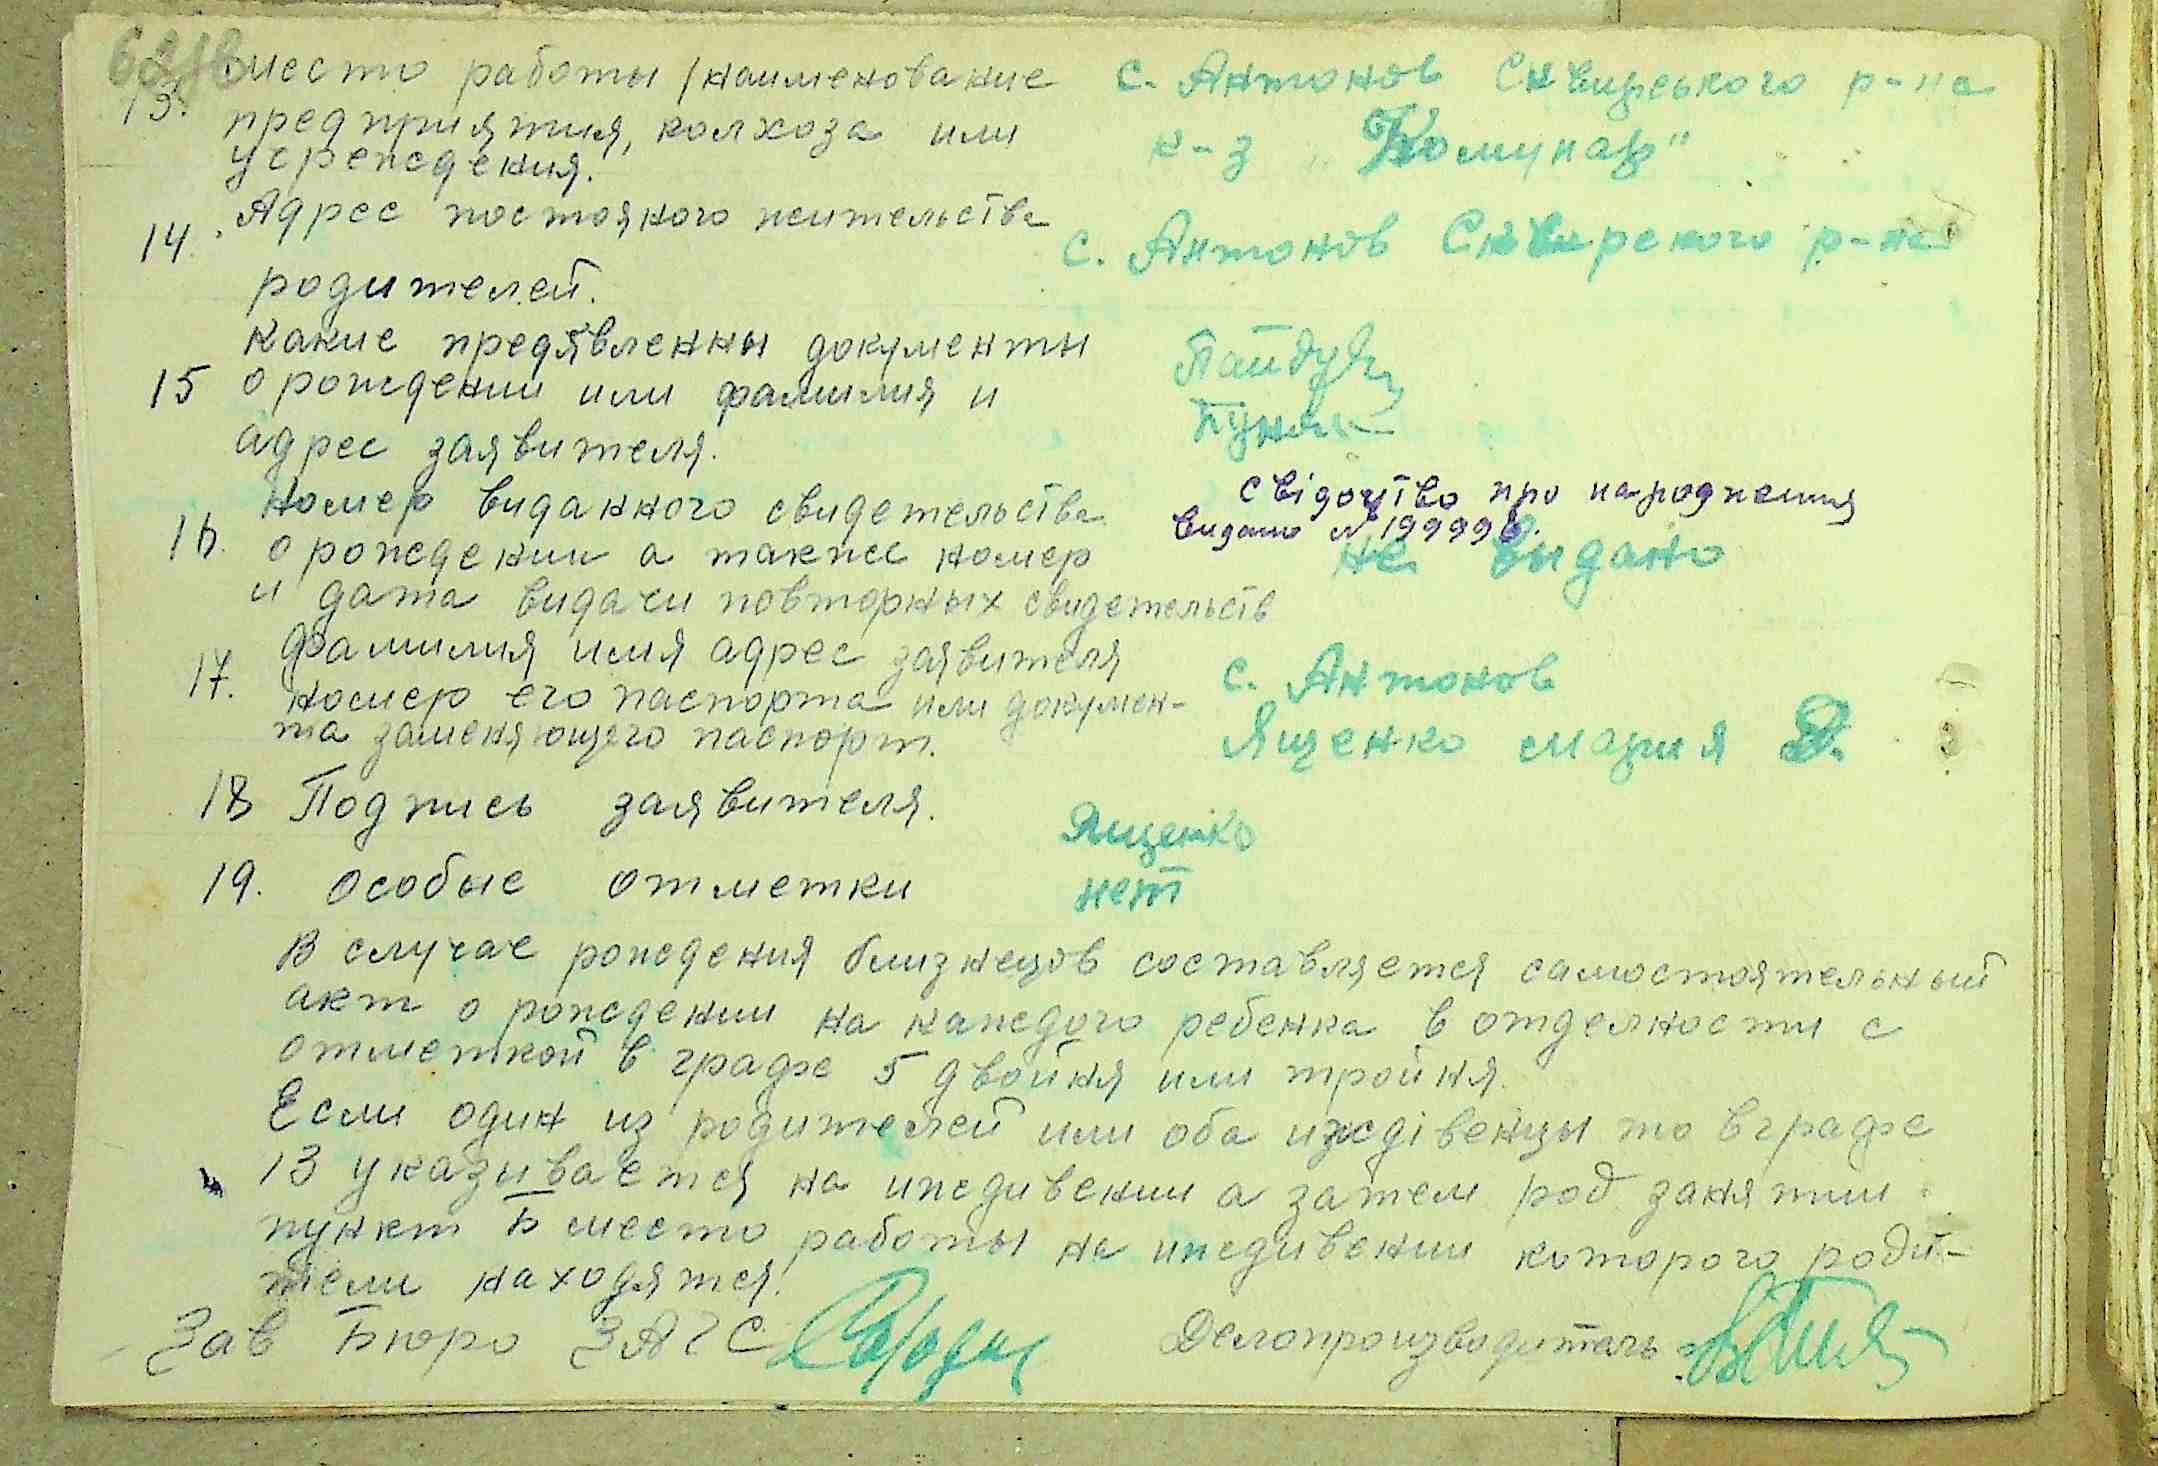 13. место работы /наименование с. Антонов Сквирського р-на
предприятия, колхоза или к-з "Комунар"
учреждения.
14. Адрес постояного жительства с. Антонов Сквирского р-на
родителей.
Какие предявленны документы
15 о рождении или фамилия и
адрес заявителя.
Номер виданного свидетельства свідоцтво про народження
видано № 199996.
16. о рождении а также номер не видано
и дата видачи повторных свидетельств
Фамилия имя адрес заявителя с. Антонов
17. номер его паспорта или докумен-
та заменяющего паспорт. Ященко мария Д.
18 Подпись заявителя. Ященко
19. Особые отметки нет
В случае рождения близнецов составляется самостоятельный
акт о рождении на каждого ребенка в отделности с
отметкой в графе 5 двойня или тройня.
Если один из родителей или оба иждівенцы то в графе
13 указивается на иждивении а затем род занятии
пункт Б место работы на иждивении которого роди-
тели находятся.
Зав Бюро ЗАГС Делопроизводитель